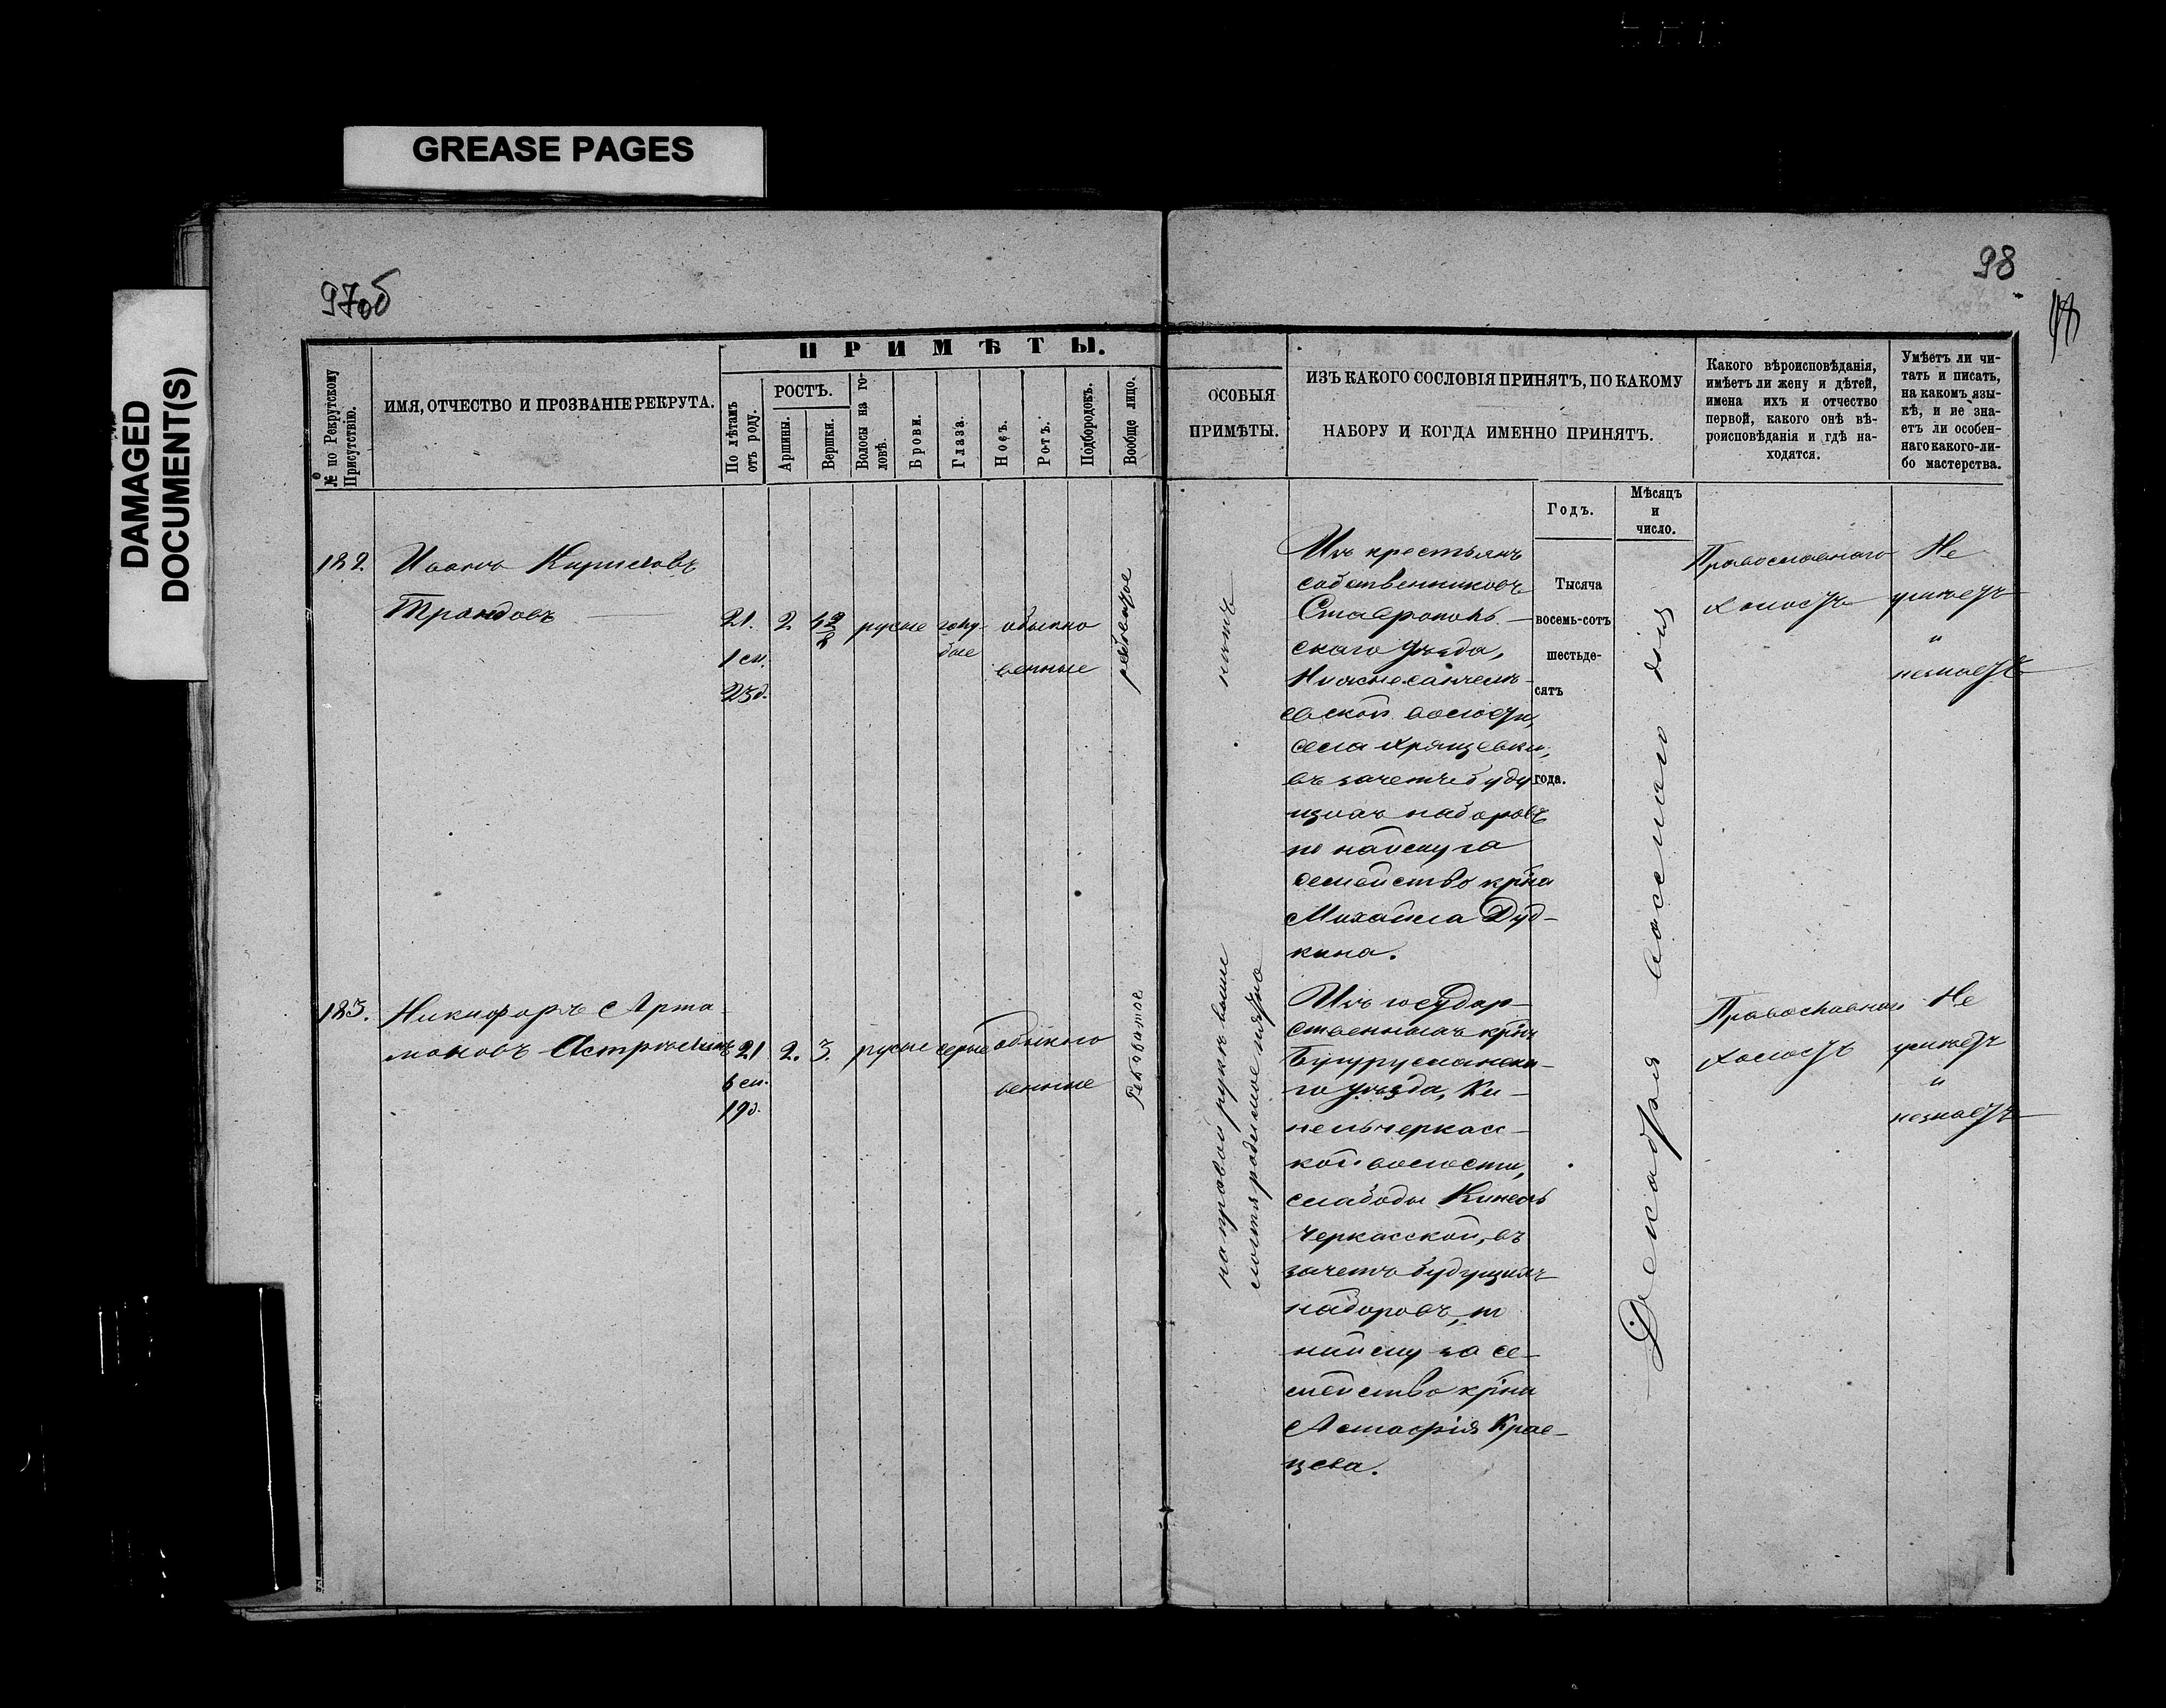 GREASE PAGES
DAMAGED
DOCUMENT(S)
97об
98
№ по Рекрутскому
Присутствію.
ИМЯ, ОТЧЕСТВО И ПРОЗВАНІЕ РЕКРУТА.
ПРИМѢТЫ.
По лѣтамъ
отъ роду.
РОСТЪ.
Аршины.
Вершки.
Волосы на го-
ловѣ.
Брови.
Глаза.
Носъ.
Ротъ.
Подбородокъ.
Вообще лицо.
ОСОБЫЯ
ПРИМѢТЫ.
ИЗЪ КАКОГО СОСЛОВІЯ ПРИНЯТЪ, ПО КАКОМУ
НАБОРУ И КОГДА ИМЕННО ПРИНЯТЪ.
Какого вѣроисповѣданія,
имѣетъ ли жену и дѣтей,
имена ихъ и отчество
первой, какого онѣ вѣ-
роисповѣданія и гдѣ на-
ходятся.
Умѣетъ ли чи-
тать и писать,
на какомъ язы-
кѣ, и не зна-
етъ ли особен-
наго какого-ли-
бо мастерства.
Годъ.
Мѣсяцъ
и
число.
182.
Иванъ Кириловъ
21.
1 м.
23 д.
2.
русые
голу-
бые
обыкно
венные
нѣтъ
Изъ крестьянъ
собственниковъ
Ставрополь-
скаго уѣзда,
волости,
села Хрящевки,
въ зачетъ буду
щихъ наборовъ
по найму за
семейство кр-на
Михаила Дуд-
кина.
Тысяча
восемь-сотъ
шестьде-
сятъ
года.
Декабря восьмаго дня
Православнаго
холостъ
Не
умѣетъ
и
незнаетъ
183.
Никифоръ Арта-
моновъ
21
6 м.
19 д.
2.
3.
русые
серые
обыкно
венные
Рябоватое
на правой рукѣ выше
локтя родимое пятно
Изъ государ-
ственныхъ кр-нъ
Бугурусланска-
го уѣзда, Ки-
нельчеркас-
кой волости,
слабоды Кинель
черкасской, въ
зачетъ будущихъ
наборовъ, по
найму за се-
мейство кр-на
Астафія Крав-
цева.
Православнаго
холостъ
Не
умѣетъ
и
незнаетъ